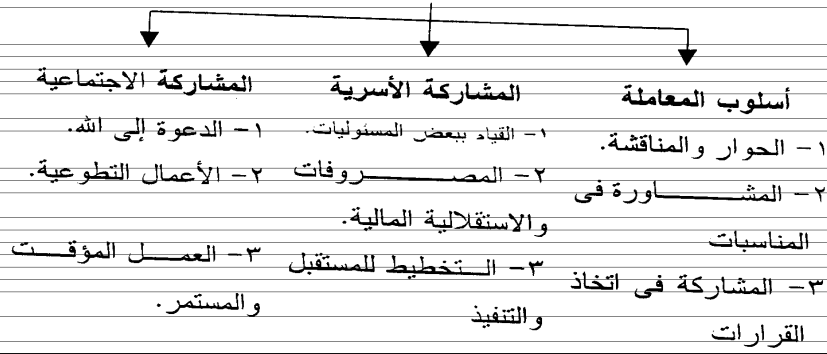 أسلوب المعاملة
١- الحوار والمناقشة.
٢- المشـــــــاورة فى
المناسبات
٣- المشاركة فى اتخاذ
القرارات
المشاركة الأسرية
١- القيام ببعض المسئوليات.
٢- المصـــــــروفات
والاستقلالية المالية.
٣- الـتخطيط للمستقبل
والتنفيذ
المشاركة الاجتماعية
١- الدعوة إلى الله.
٢- الأعمال التطوعية.
٣- العمــل المؤقــت
والمستمر.